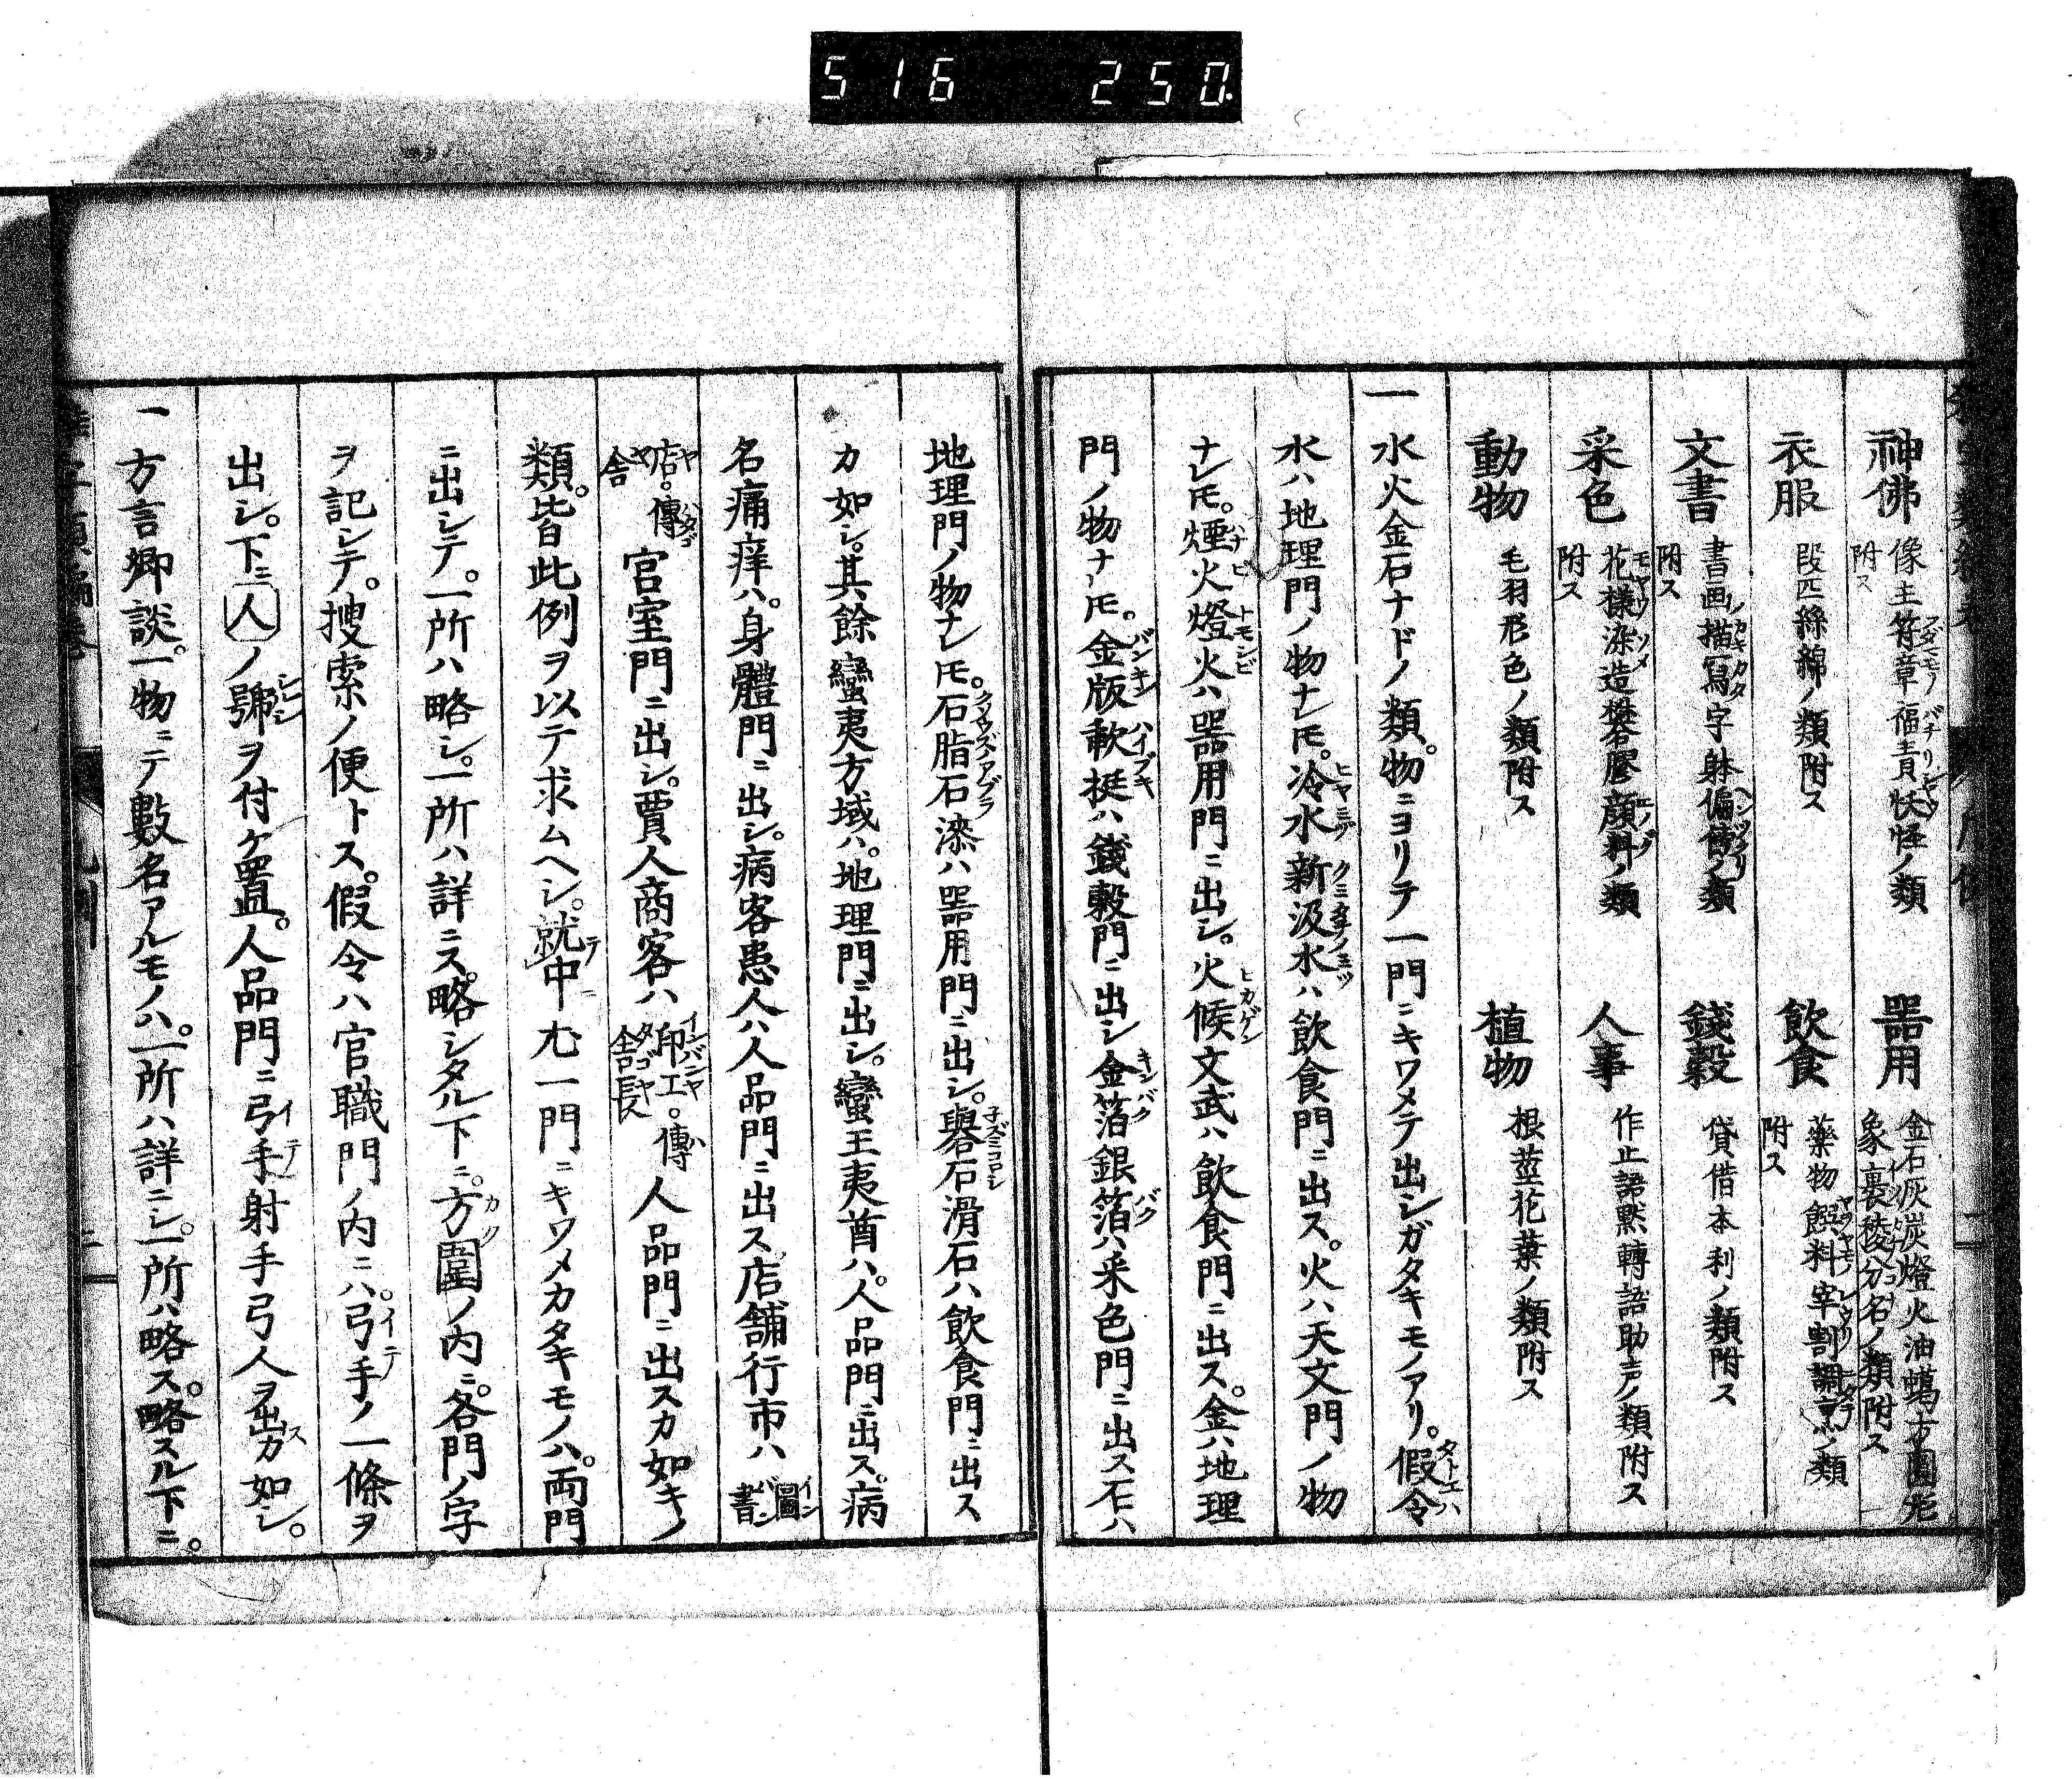 516 250
神佛 像主符章福責妖怪ノ類附ス 器用 金石灰炭燈火油蝋方圓形象裏稜分名ノ類附ス
衣服 段匹絲綿ノ類附ス 飲食 藥物饌料宰割調ノ類附ス
文書 書画描寫字躰偏傍ノ類附ス 錢穀 貸借本利ノ類附ス
采色 花様染造礬膠顔料ノ類附ス 人事 作止語黙轉語助声ノ類附ス
動物 毛羽形色ノ類附ス 植物 根莖花葉ノ類附ス
一 水火金石ナドノ類。物ニヨリテ一門ニキワメテ出シガタキモノアリ。假令
水ハ地理門ノ物ナレ𪜈。冷水新汲水ハ飲食門ニ出ス。火ハ天文門ノ物
ナレ𪜈。煙火燈火ハ器用門ニ出シ。火候文武ハ飲食門ニ出ス。金ハ地理
門ノ物ナレ𪜈。金版軟挺ハ錢穀門ニ出シ金箔銀箔ハ采色門ニ出ス石ハ
地理門ノ物ナレ𪜈。石脂石漆ハ器用門ニ出シ。礜石滑石ハ飲食門ニ出ス
カ如シ。其餘蠻夷方域ハ。地理門ニ出シ。蠻王夷酋ハ。人品門ニ出ス。病
名痛痒ハ。身體門ニ出シ。病客患人ハ人品門ニ出ス店舗行市ハ 圖書
店。傳舎 官室門ニ出シ。賈人商客ハ 印工。傳舎長 人品門ニ出スカ如キノ
類。皆此例ヲ以テ求ムヘシ。就中尤一門ニキワメカタキモノハ。両門
ニ出シテ。一所ハ略シ。一所ハ詳ニス。略シタル下ニ。方圍ノ内ニ。各門ノ字
ヲ記シテ。搜索ノ便トス。假令ハ官職門ノ内ニハ。弓手ノ一條ヲ
出シ。下ニ人ノ號ヲ付ケ置。人品門ニ弓手射手弓人ヲ出スカ如シ。
一 方言郷談。一物ニテ數名アルモノハ。一所ハ詳ニシ。一所ハ略ス。略スル下ニ。